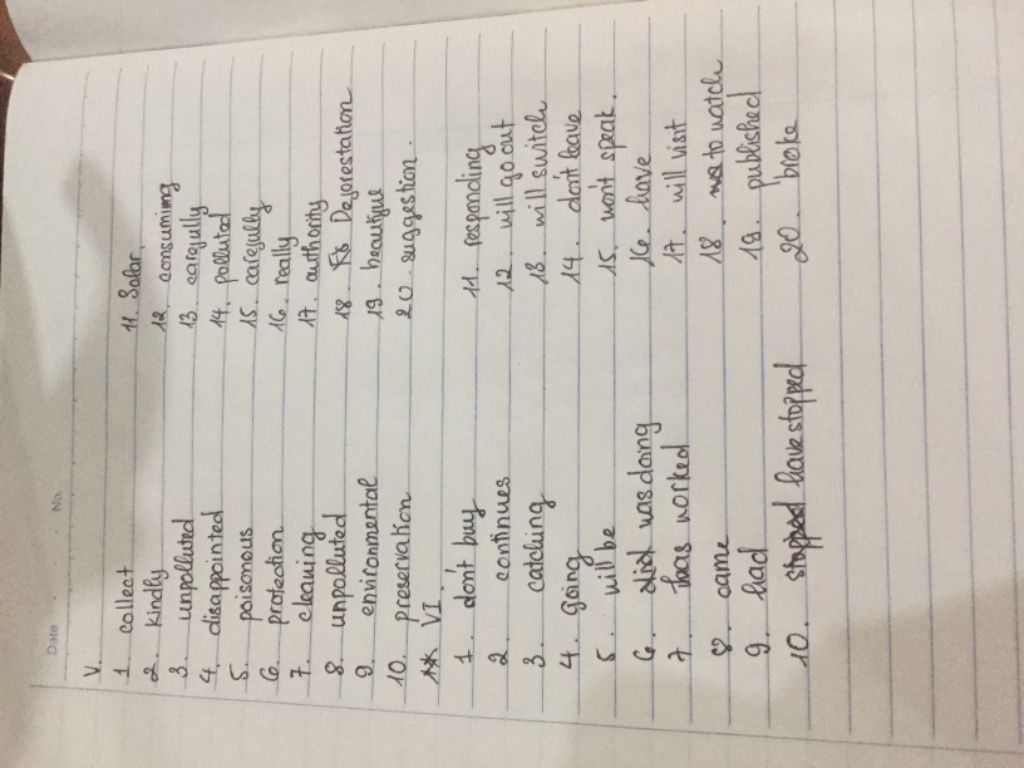 Date No.
V.
1. collect 11. Solar
2. kindly 12. consuming
3. unpolluted 13. carefully
4. disappointed 14. polluted
5. poisonous 15. carefully
6. protection 16. really
7. cleaning 17. authority
8. unpolluted 18. Deforestation
9. environmental 19. beautiful
10. preservation 20. suggestion.
VI.
1. don't buy 11. responding
2. continues 12. will go out
3. catching 13. will switch
4. Going 14. don't leave
5. will be 15. won't speak.
6. did was doing 16. have
7. has worked 17. will visit
8. came 18. to watch
9. had 19. published
10. stopped have stopped 20. broke